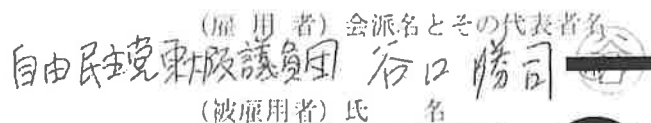 (雇用者) 会派名とその代表者名
自由民主党東大阪議員団 谷口勝司 谷
(被雇用者) 氏 名